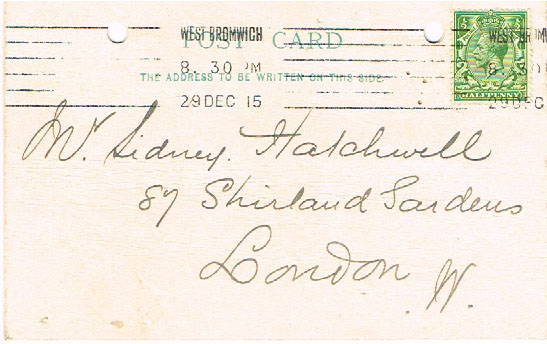 POST CARD
THE ADDRESS TO BE WRITTEN ON THIS SIDE
WEST BROMWICH
8. 30 PM
29 DEC 15
WEST BROMW
8. 30
29 DEC
HALFPENNY
Mr Sidney. Hatchwell
87 Shirland Gardens
London W.